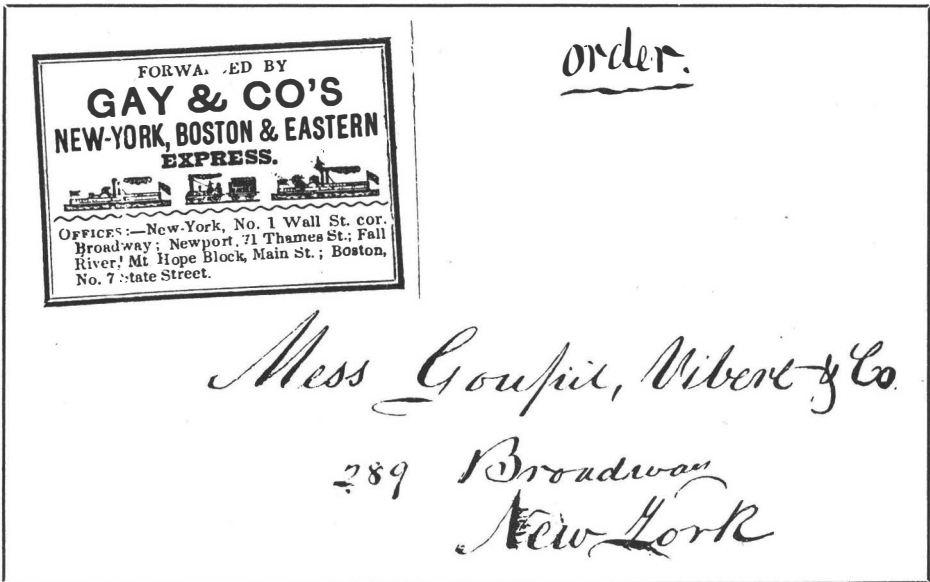 FORWA  ED BY
GAY & CO'S
NEW-YORK, BOSTON & EASTERN
EXPRESS.
OFFICES:—New-York, No. 1 Wall St. cor.
Broadway; Newport, 71 Thames St.; Fall
River, Mt Hope Block, Main St.; Boston,
No. 7 State Street.
order.
Mess Goupil, Vibert & Co.
289 Broadway
New York